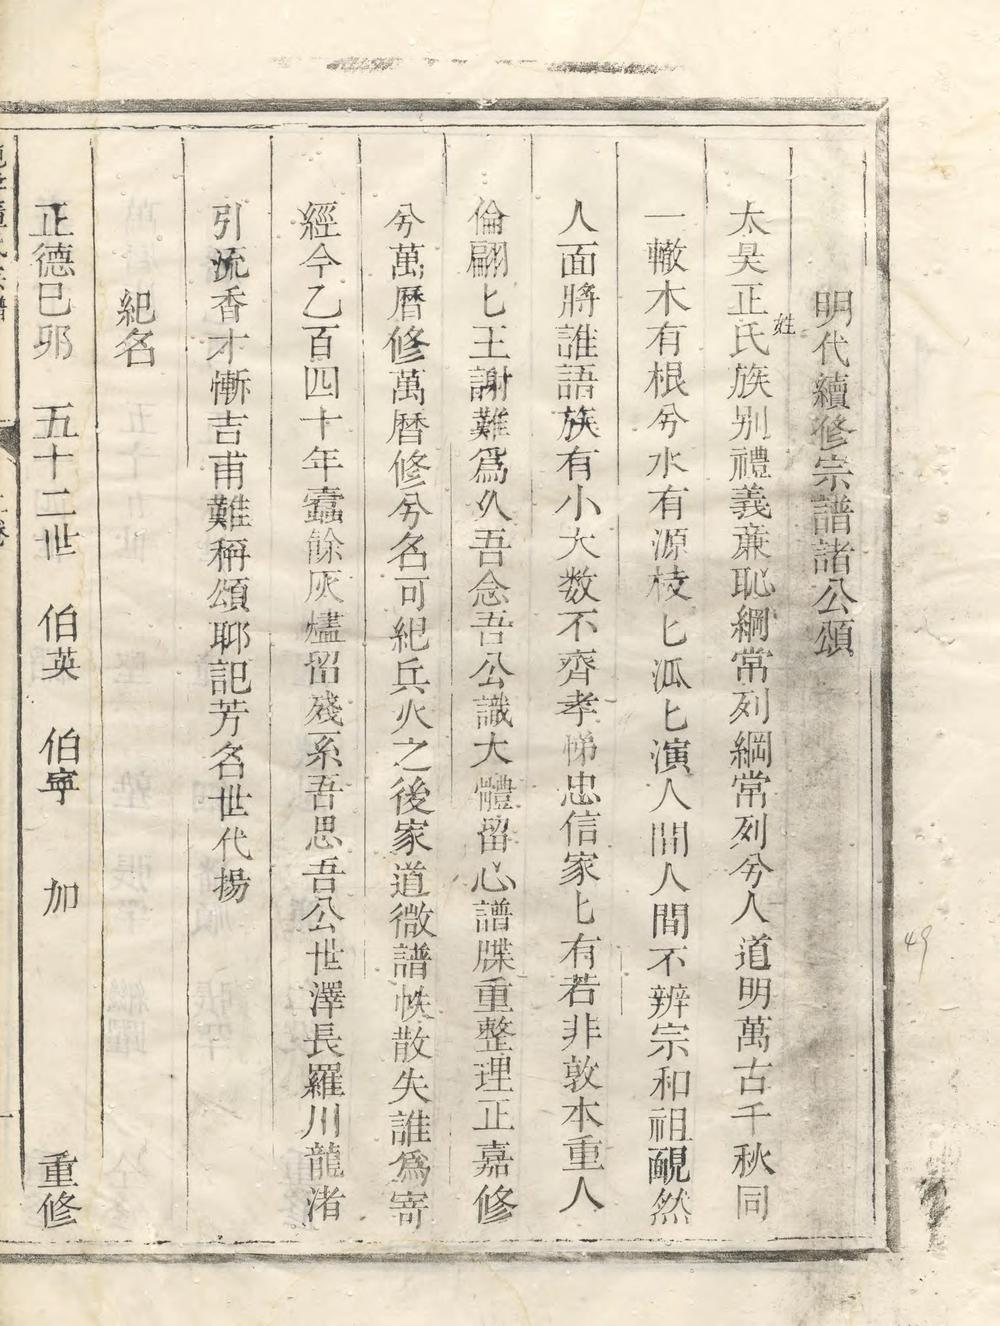 明代續修宗譜諸公頌
太昊正氏族别禮義亷恥綱常列綱常列兮人道明萬古千秋同
姓
一轍木有根兮水有源枝匕泒匕演人間人間不辨宗和祖靦然
人面將誰語族有小大数不齊孝悌忠信家匕有若非敦本重人
倫翩匕王謝難爲久吾念吾公識大體留心譜牒重整理正嘉修
兮萬曆修萬曆修兮名可紀兵火之後家道微譜帙散失誰爲寄
經今乙百四十年蠧餘灰燼留殘系吾思吾公世澤長羅川龍渚
引流香才慚吉甫難稱頌耶記芳名世代揚
紀名
正德巳卯 五十二世 伯英 伯寧 加 重修
49